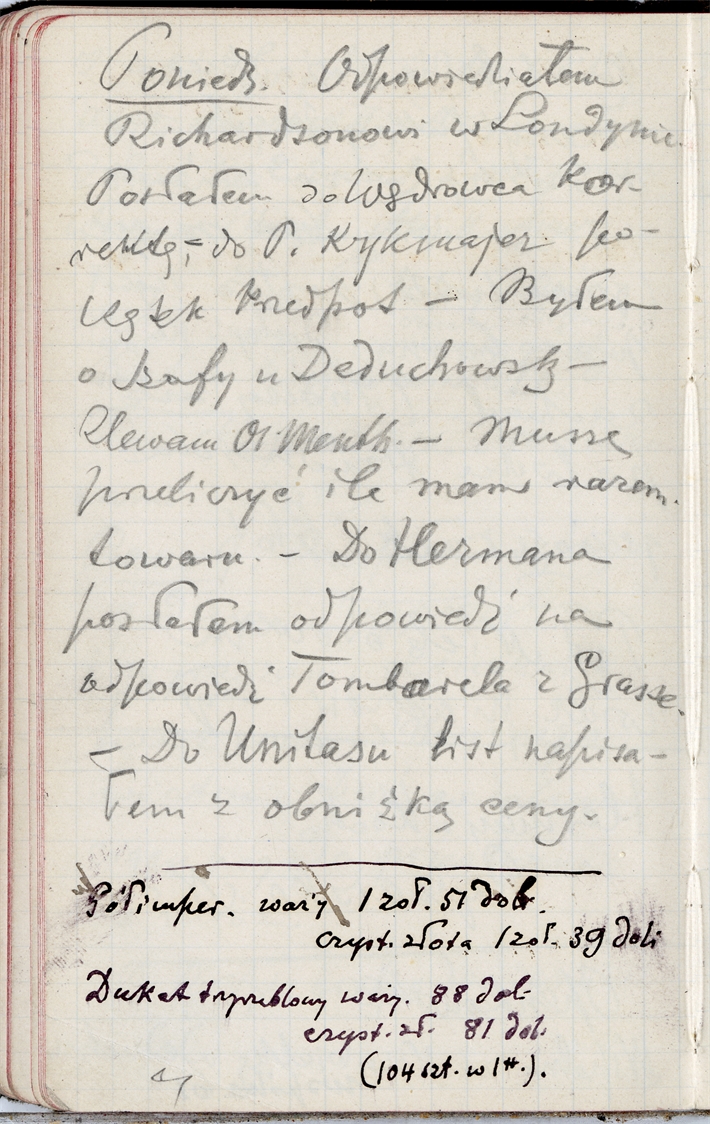 Poniedz. Odpowiedziałem
Richardsonowi w Londynie.
Posłałem do Wędrowca kor-
rektę, – do P. Krykmajer po-
Kredpot – Byłem
o u Deduchowsk –
Ol Menth. – Muszę
przeliczyć ile mam razem
towaru. – Do Hermana
posłałem odpowiedź na
odpowiedź Tombarela z Grasse.
– Do Unitasu list napisa-
łem z obniżką ceny.
Półimper. waży 1 zoł. 51 dol.
czyst. złota 1 zoł. 39 doli
Dukat trzyrublowy waży. 88 dol.
czyst. zł. 81 dol.
(104 szt. w 1 ℔.).